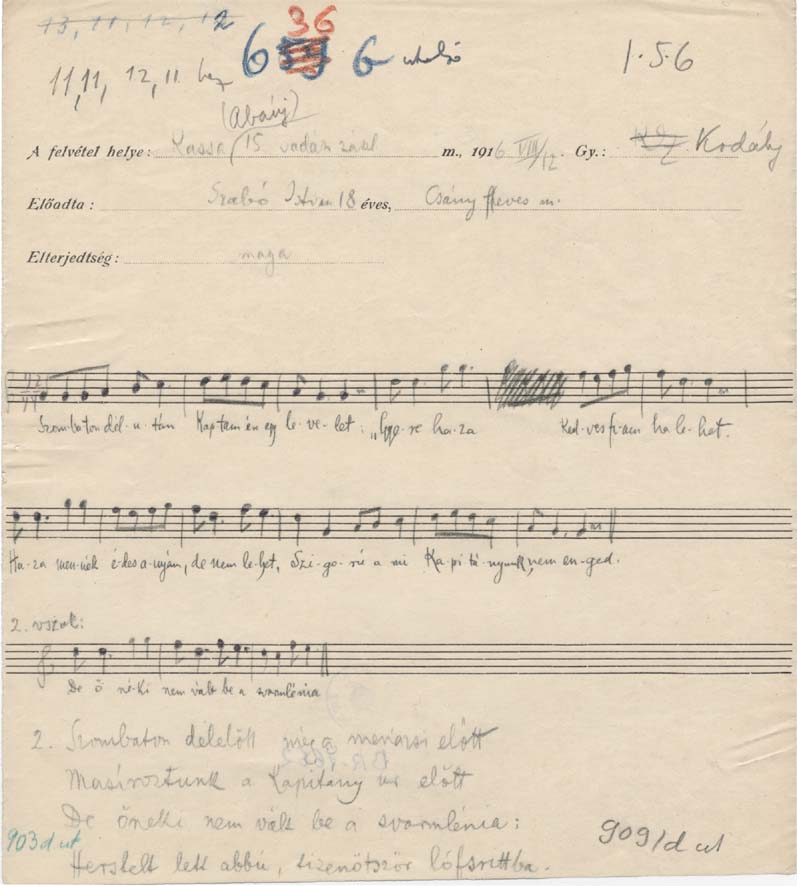 13, 11, 12, 12
6 36 6 utolsó
1·5·6
11, 11, 12, 11.
(Abauj)
A felvétel helye: Kassa, 15 vadász zászl m., 1916 VIII/12. Gy.: Kodály
Előadta: Szabó István 18 éves, Csány Heves m.
Elterjedtség: maga
Szombaton dél- u- tán Kaptam én egy le- ve- let: „Gye- re ha- za Ked- ves fi- am ha le- het.
Ha- za men- nék é- des a- nyám, de nem le- het, Szi- go- rú a mi Ka- pi tá- nyunk, nem en- ged.
2. vszak:
De ő né- ki nem vált be a svarmlénia
2. Szombaton délelőtt még a menázsi előtt
Masíroztunk a Kapitány ur előtt
De őneki nem vált be a svarmlénia:
903 d ut
909/d ut
Herstelt lett abbú, tizenötször lófsrittba.